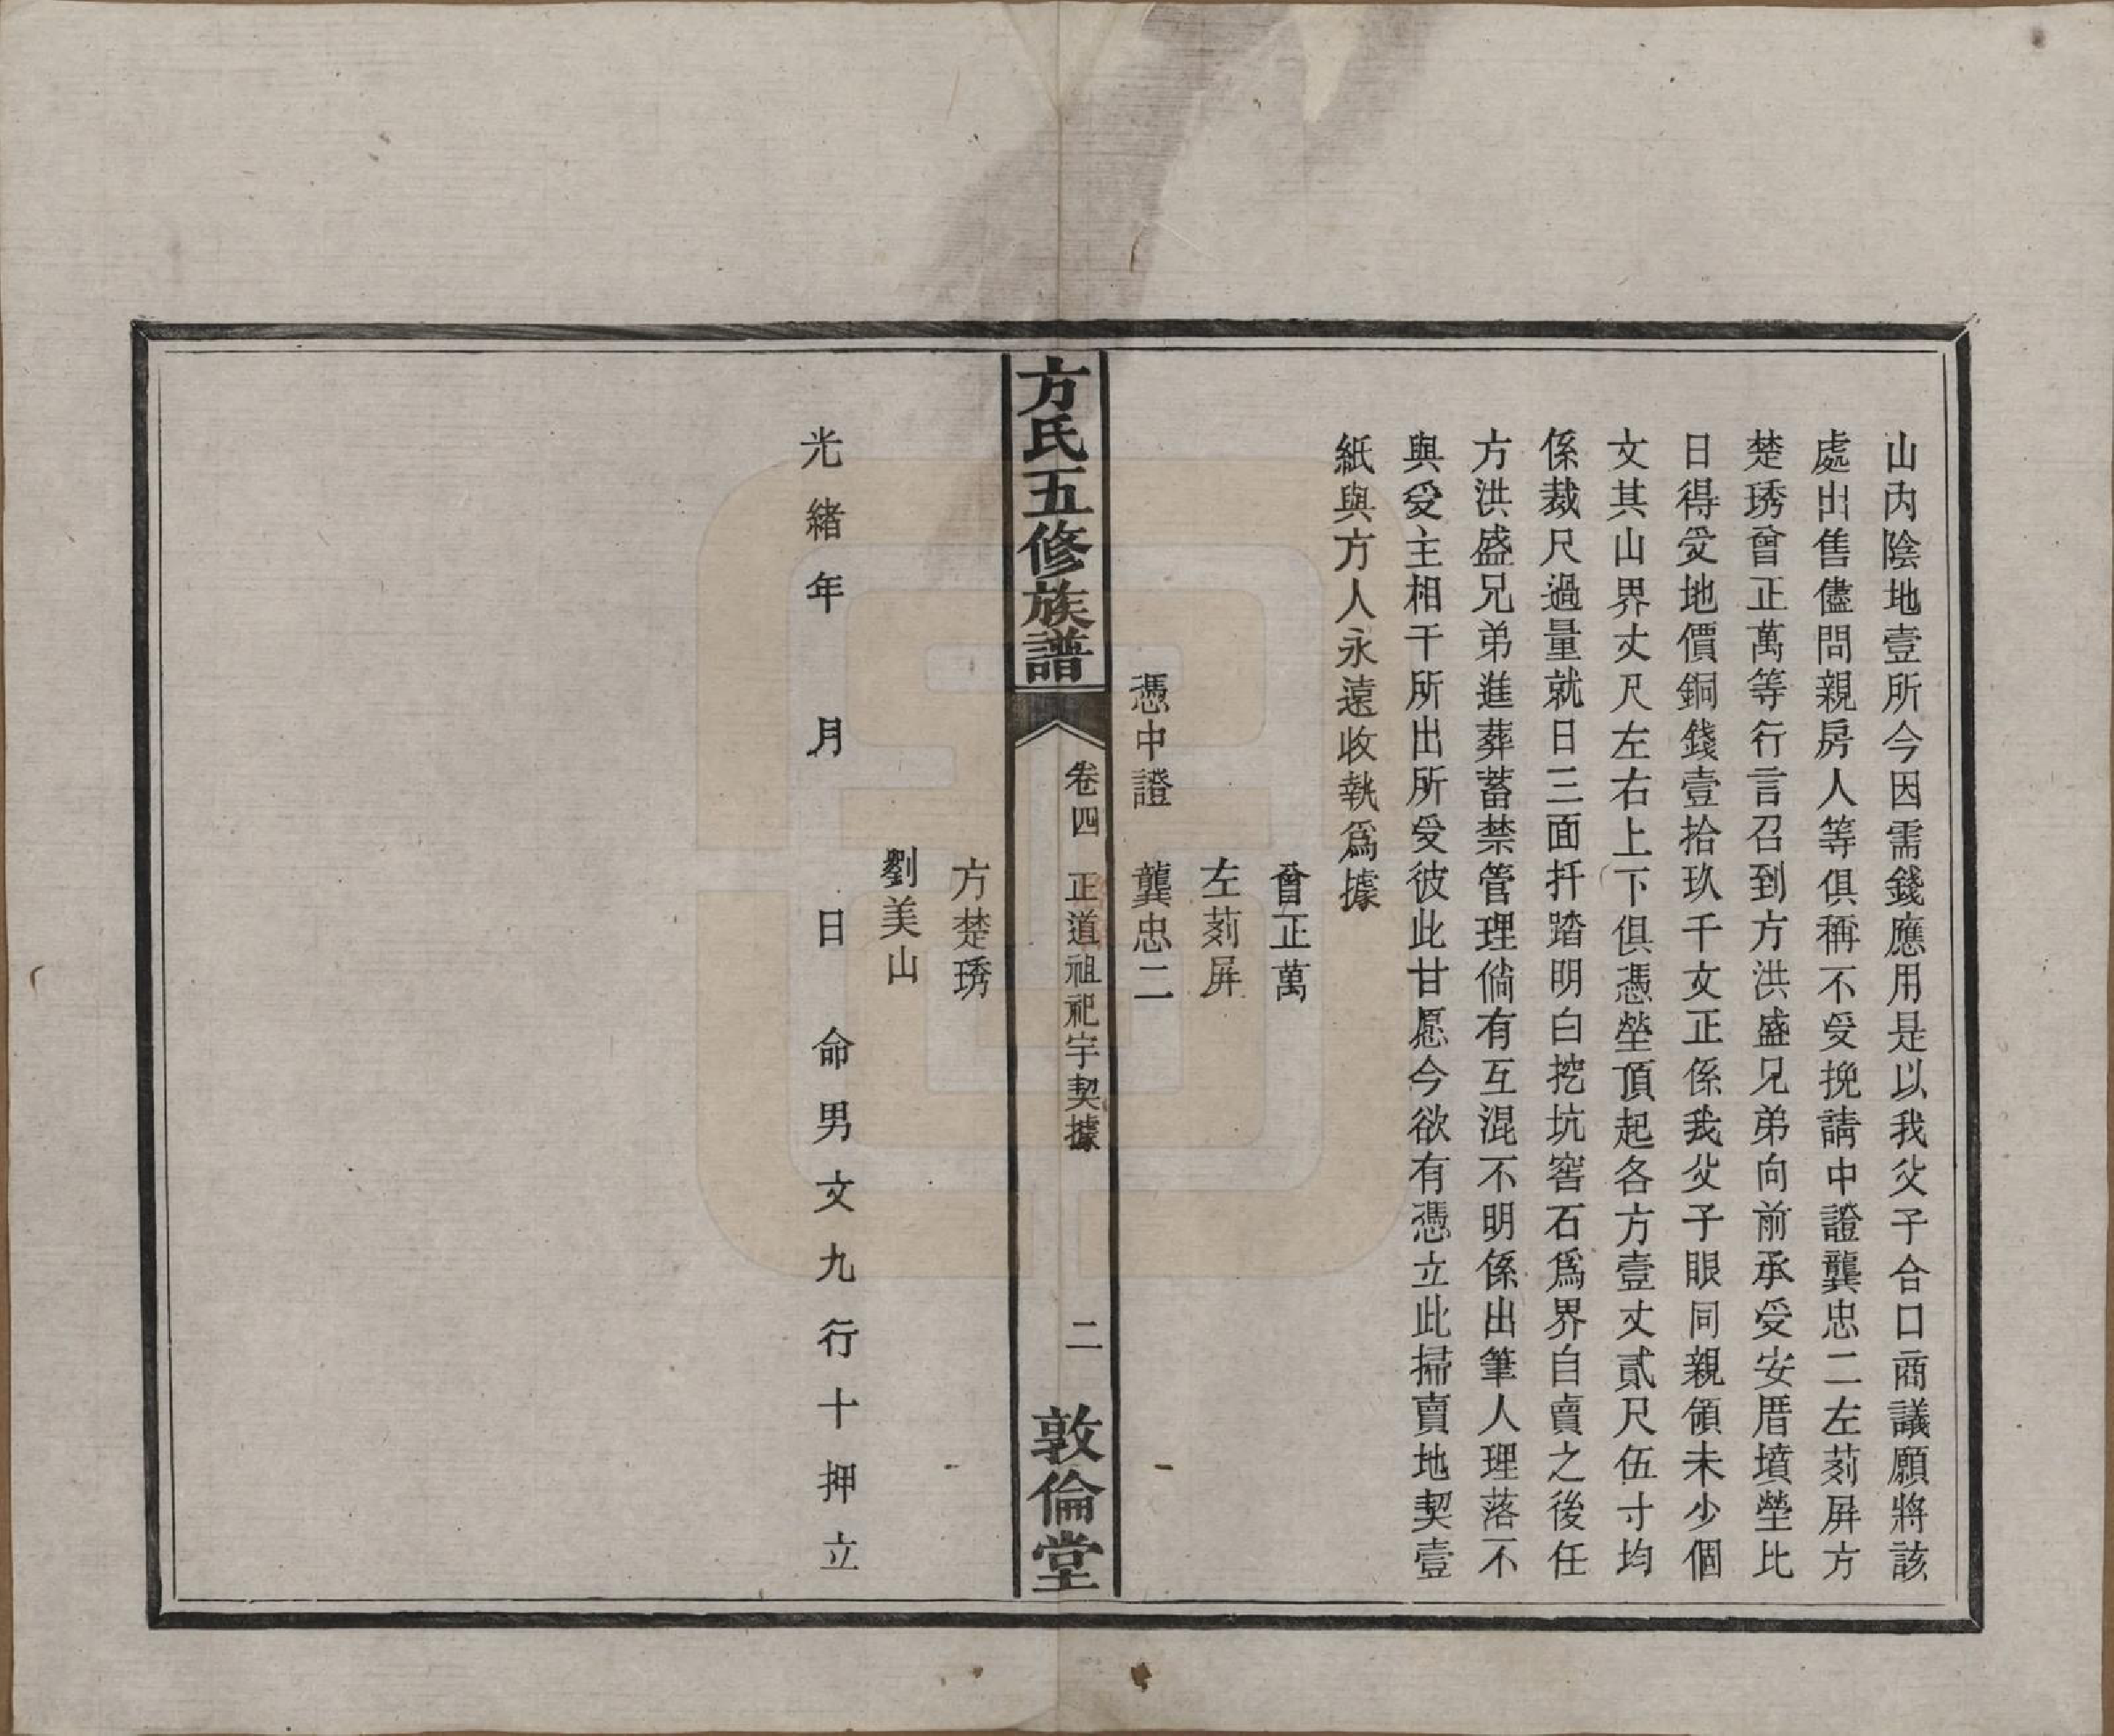 山内陰地壹所今因需錢應用是以我父子合口商議願將該
處出售儘問親房人等俱稱不受挽請中證龔忠二左茢屏方
楚琇曾正萬等行言召到方洪盛兄弟向前承受安厝墳塋比
日得受地價銅錢壹拾玖千文正係我父子眼同親領未少個
文其山界丈尺左右上下俱憑塋頂起各方壹丈貳尺伍寸均
係裁尺過量就日三面扦踏明白挖坑窖石爲界自賣之後任
方洪盛兄弟進葬蓄禁管理倘有互混不明係出筆人理落不
與受主相干所出所受彼此甘愿今欲有憑立此掃賣地契壹
紙與方人永遠收執爲據
曾正萬
左茢屏
憑中證 龔忠二
方氏五修族譜 卷四 正道祖祀宇契據 二 敦倫堂
方楚琇
劉美山
光緒年 月 日 命男文九行十押立